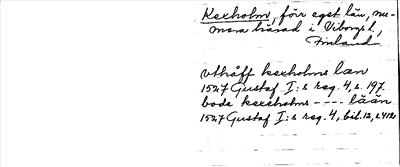 Kexholm, förr eget län, nu-
mera härad i Viborgs l.,
Finland
vthåff kexholms lan
1547 Gustaf I:s reg. 4, s. 197
bode kexeholms ---- låån
1547 Gustaf I:s reg. 4, bil. 12, s. 412